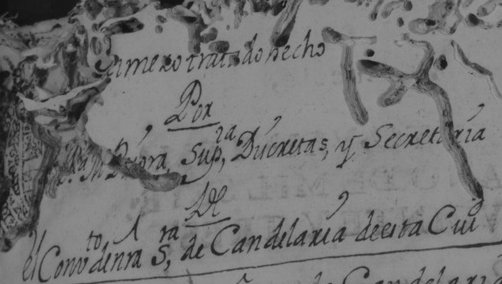 imero tratado hecho
Por
M Priora Sup,ra Discretas, y Secretaria
De
el Convto de nra Sra, de Candelaria de esta Ciud
de Candelari